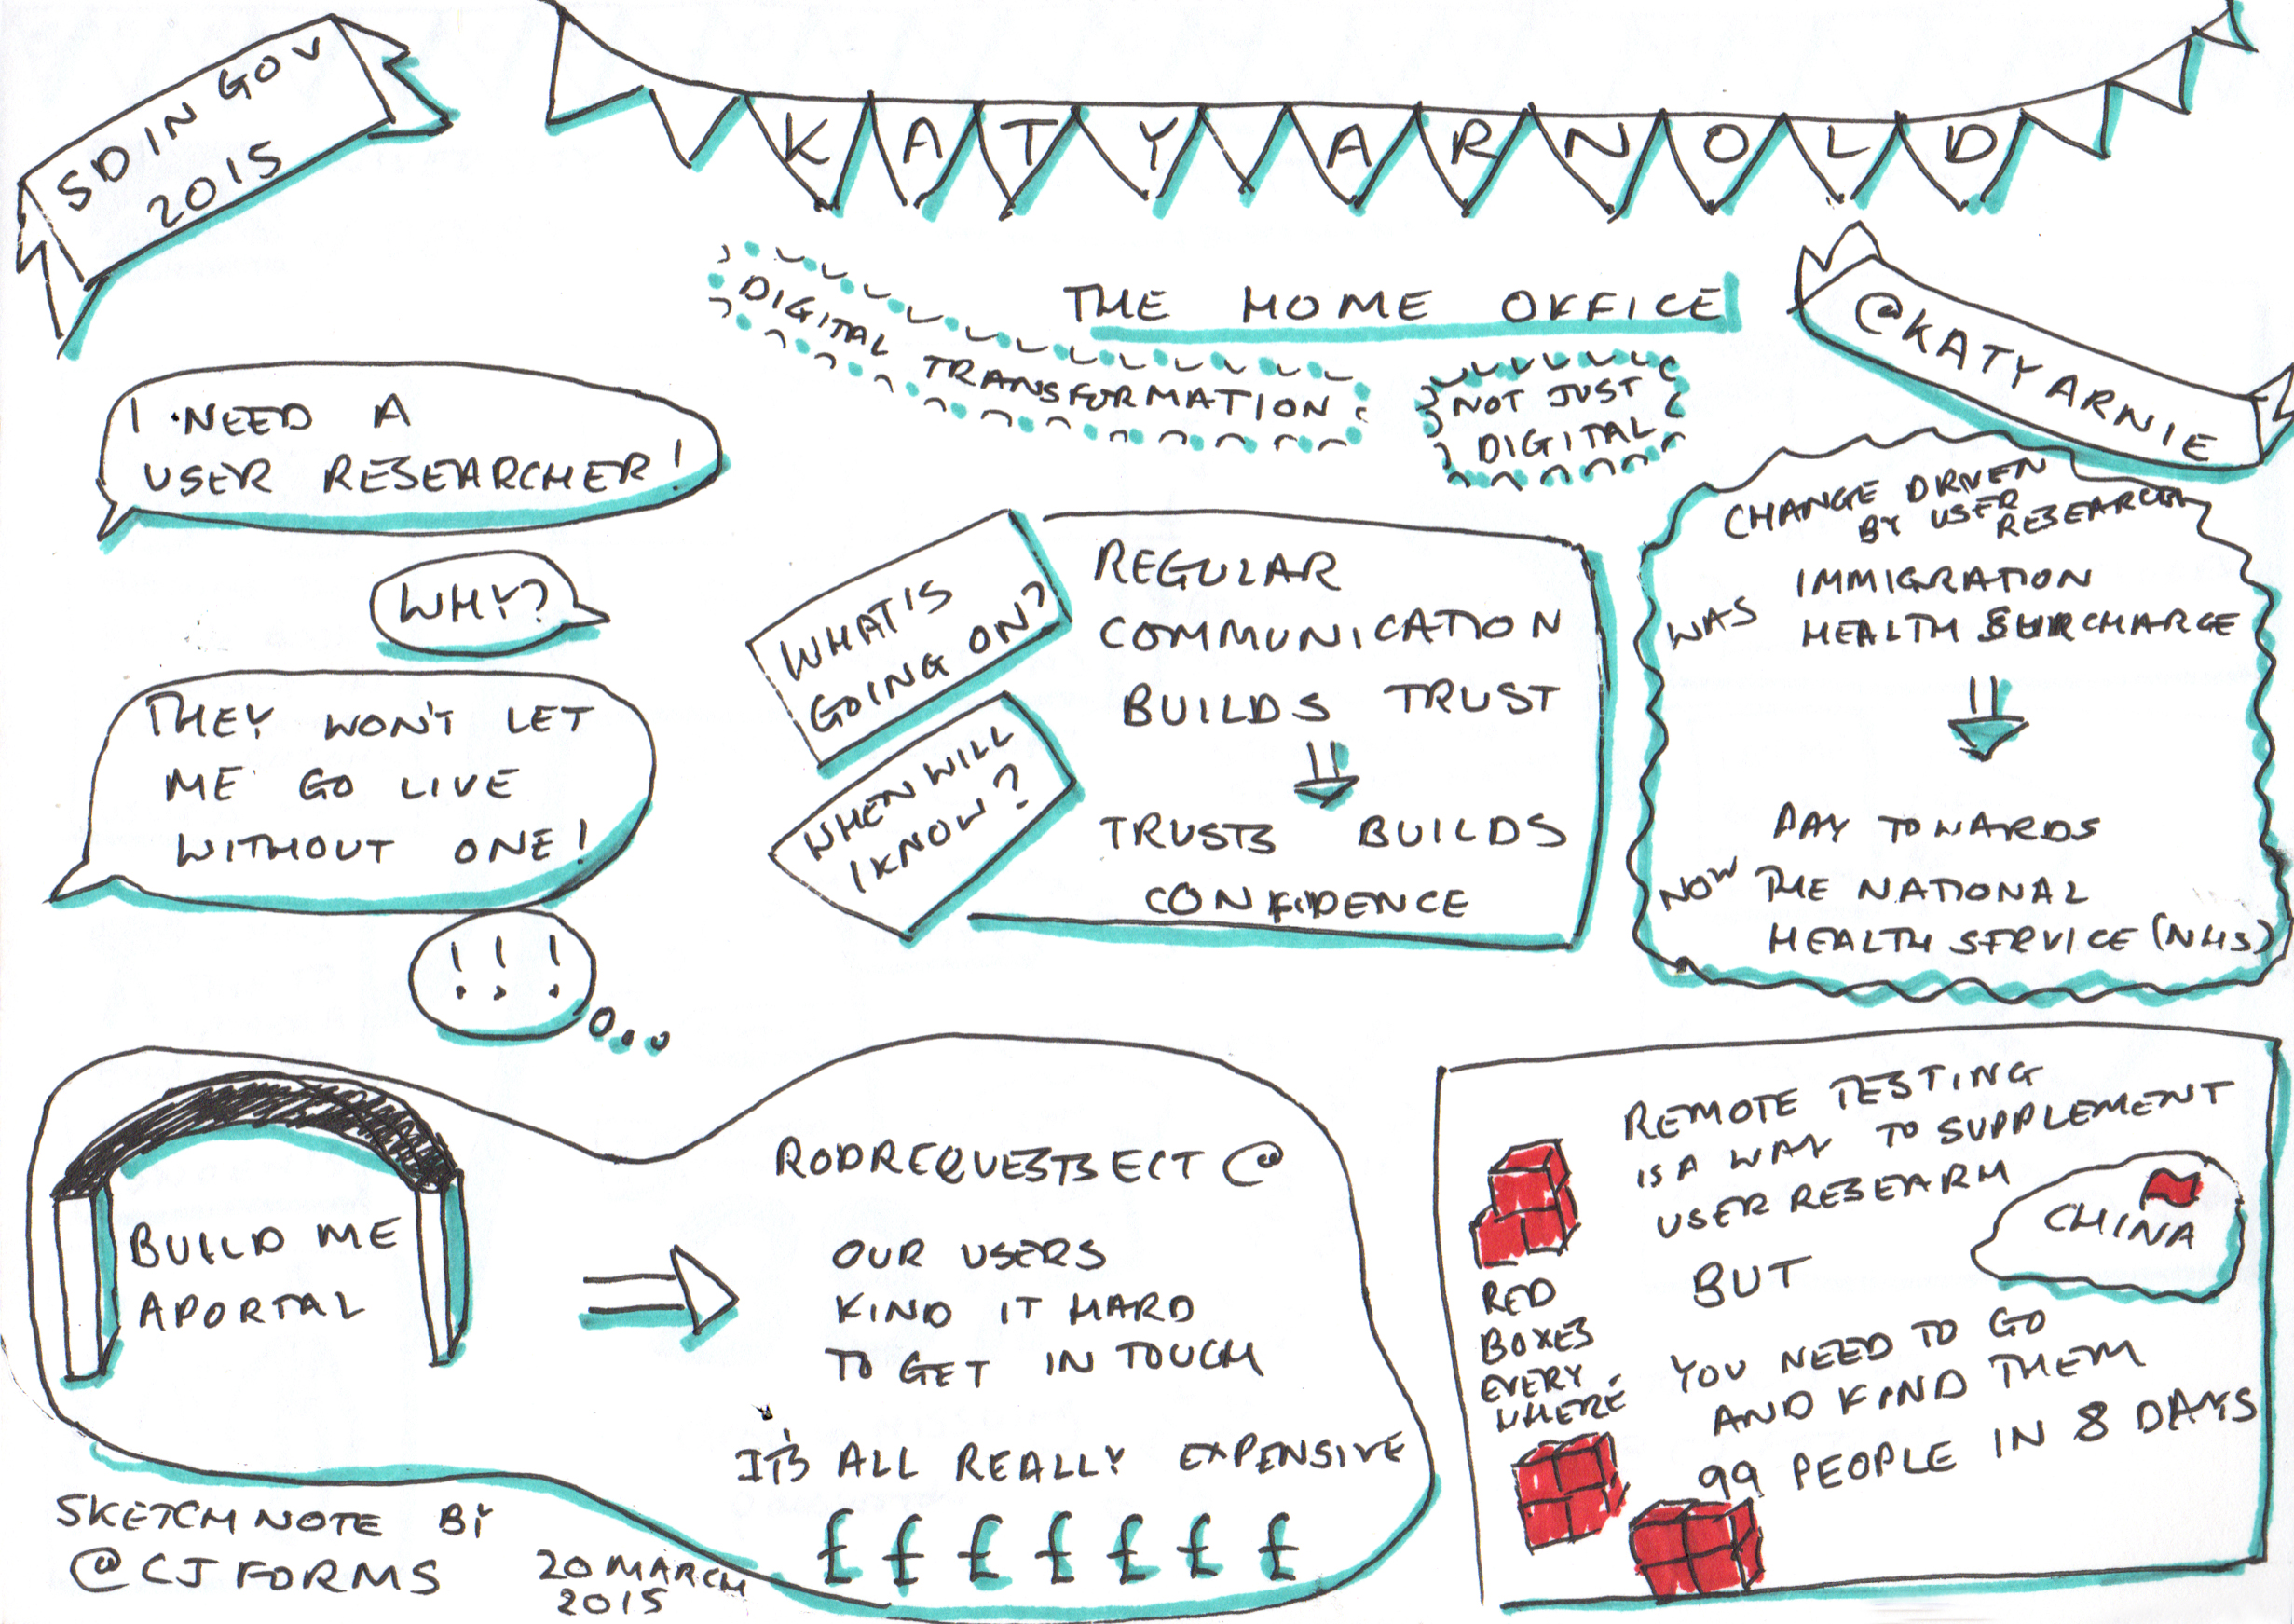 SD IN GOV
2015
KATY ARNOLD
THE HOME OFFICE
@KATYARNIE
DIGITAL TRANSFORMATION
NOT JUST
DIGITAL
I NEED A
USER RESEARCHER!
WHY?
THEY WON'T LET
ME GO LIVE
WITHOUT ONE!
! ! !
WHAT IS
GOING ON?
WHEN WILL
I KNOW?
REGULAR
COMMUNICATION
BUILDS TRUST
TRUSTS BUILDS
CONFIDENCE
CHANGE DRIVEN
BY USER
RESEARCH
WAS IMMIGRATION
HEALTH SURCHARGE
PAY TOWARDS
NOW THE NATIONAL
HEALTH SERVICE (NHS)
BUILD ME
A PORTAL
RODREQUESTSECT@
OUR USERS
FIND IT HARD
TO GET IN TOUCH
IT'S ALL REALLY EXPENSIVE
£ £ £ £ £ £ £
REMOTE TESTING
IS A WAY TO SUPPLEMENT
USER RESEARH
CHINA
BUT
YOU NEED TO GO
AND FIND THEM
99 PEOPLE IN 8 DAYS
RED
BOXES
EVERY
WHERE
SKETCHNOTE BY
@CJFORMS
20 MARCH
2015